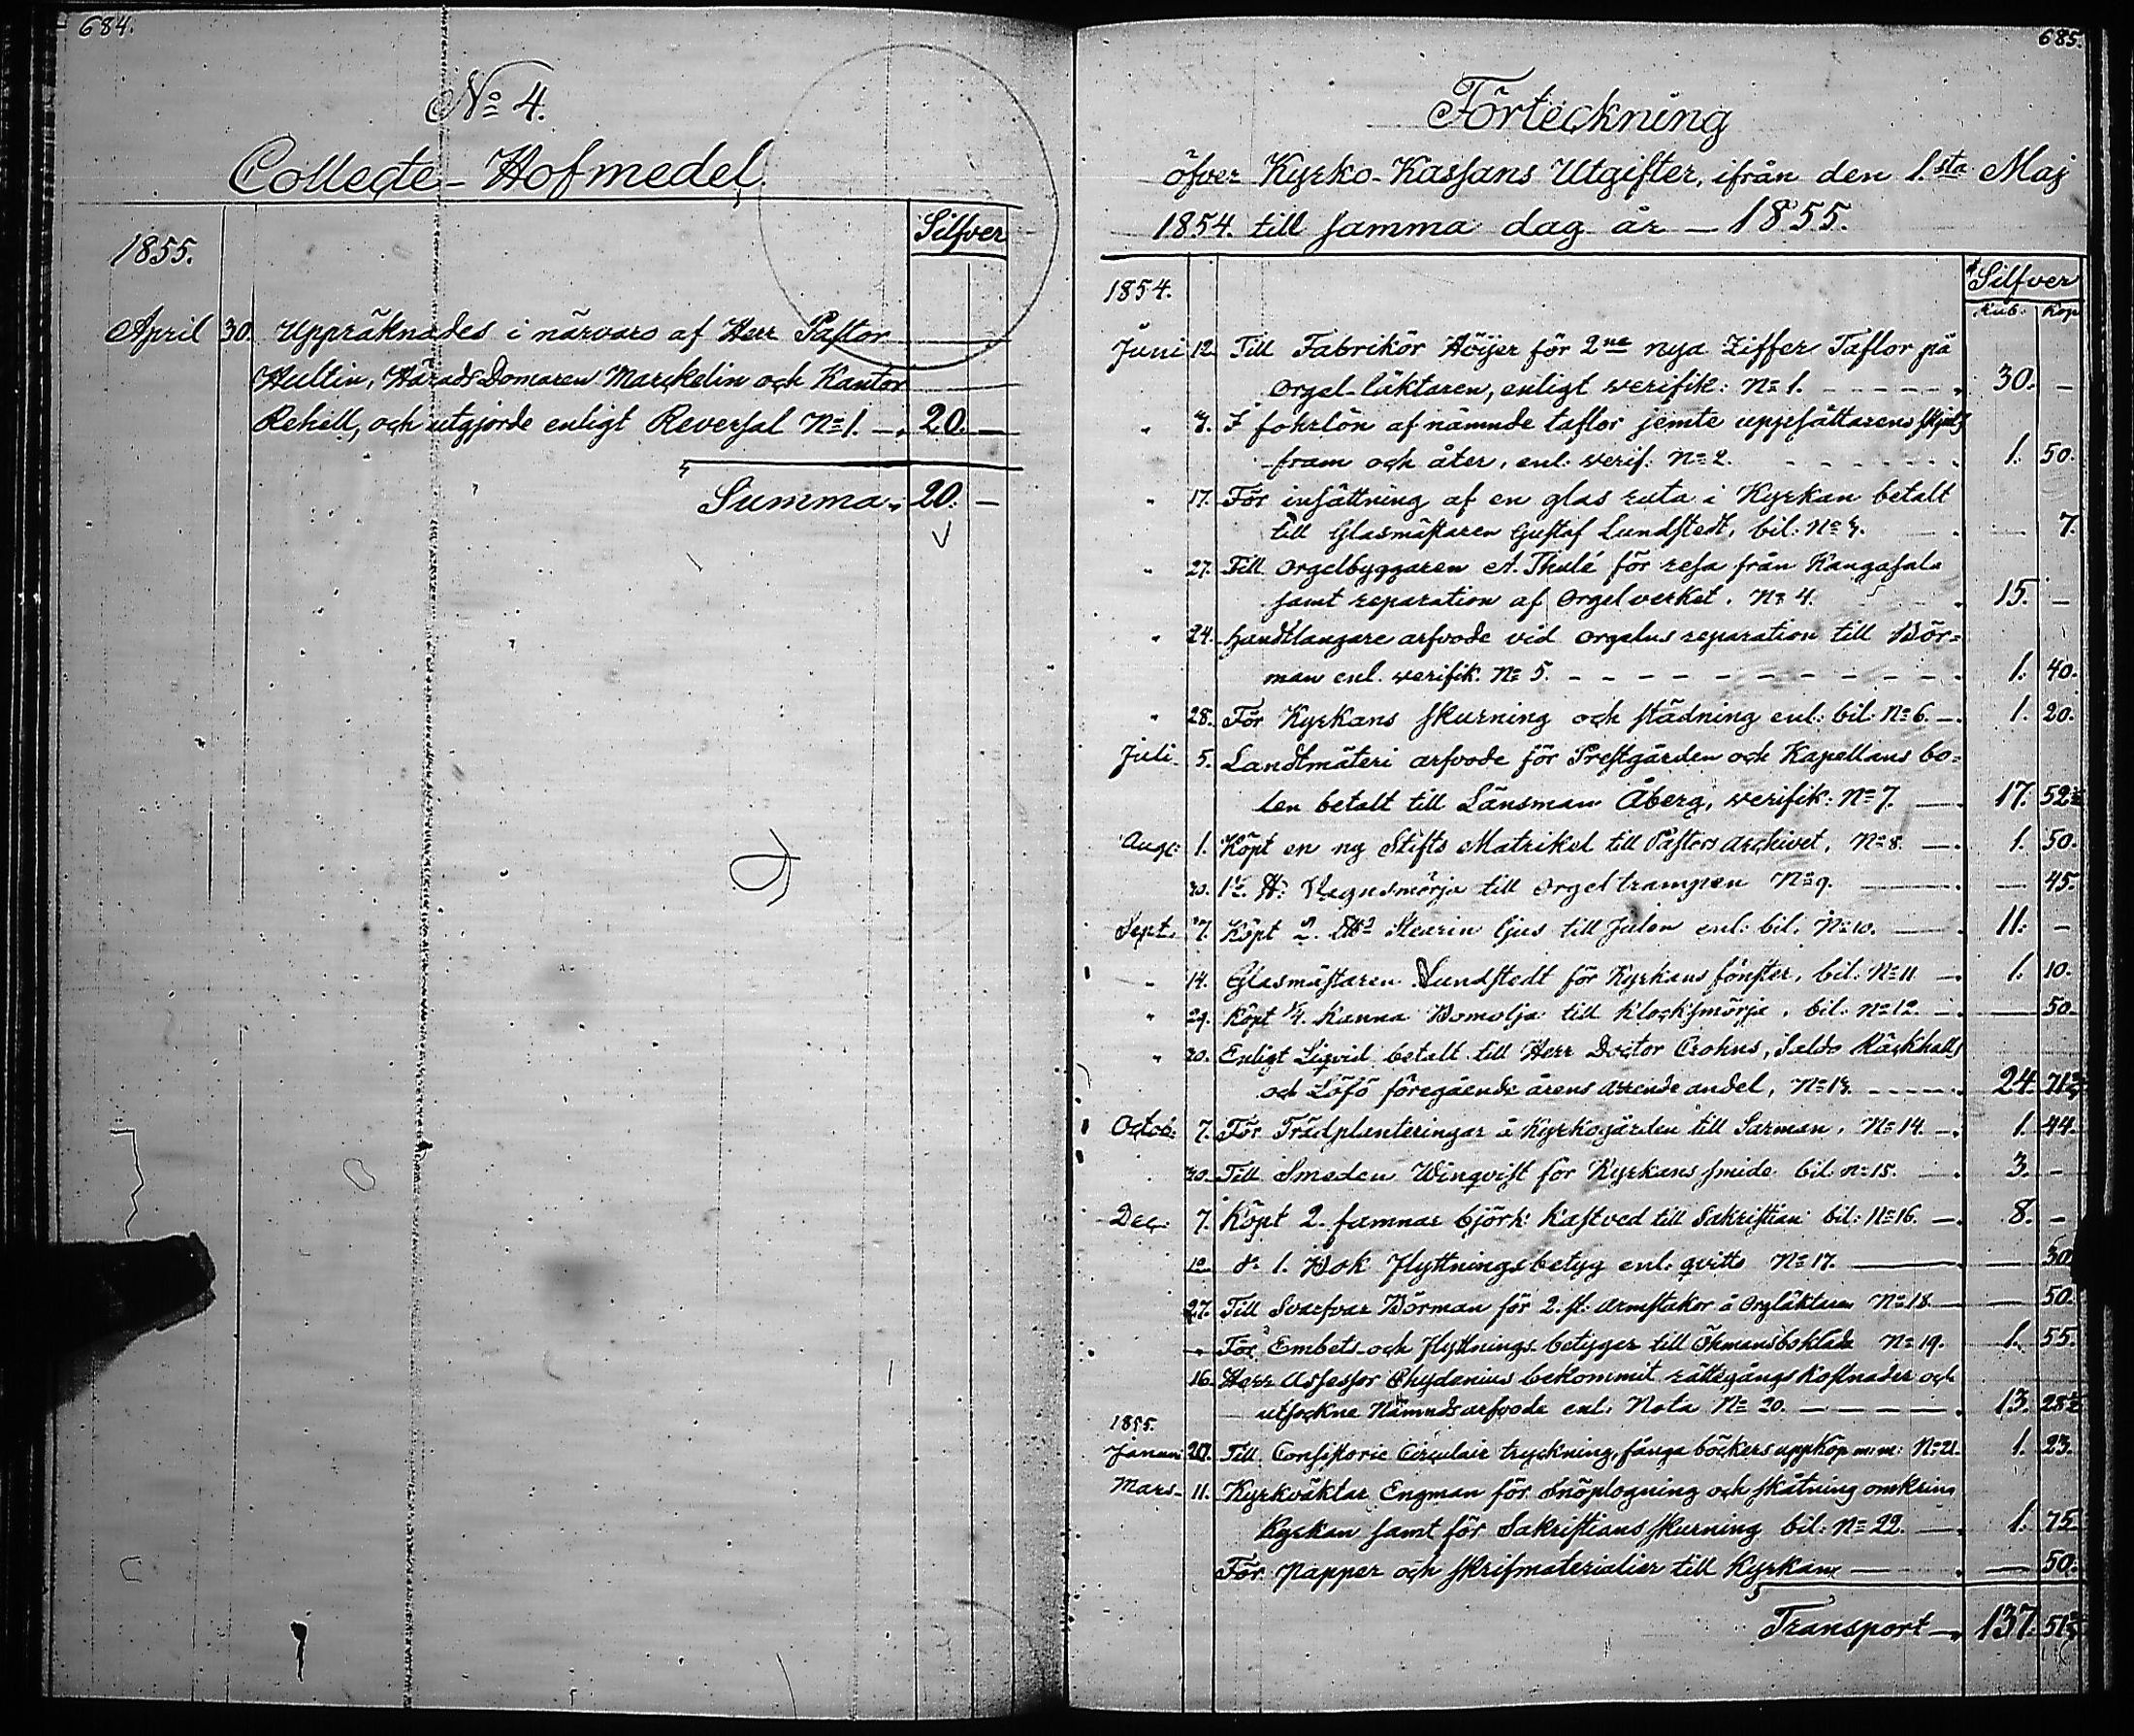 684.
No 4.
Collecte-Hofmedel
Silfver
1855.
April 30. Uppräknades i närvaro af Herr Pastor
Hultin, HäradsDomaren Marckelin och Kantor
Rehell, och utgjorde enligt Reversal No 1. — 20. —
Summa. 20. —
685.
Förteckning
öfver Kyrko-Kassans Utgifter, ifrån den 1.sta Maj
1854. till samma dag år — 1855.
1854. Silfver
Rub. Kop
Juni 12. Till Fabrikör Höijer för 2ne nya Ziffer Taflor på
Orgel-läktaren, enligt verifik: No 1. 30. —
" I fohrlön af nämnde taflor jemte uppsättarens skjuts
fram och åter, enl. verif: No 2. 1. 50.
" 17. För insättning af en glas ruta i Kyrkan betalt
till Glasmästaren Gustaf Lundstedt, bil: No 3. — 7.
" 27. Till Orgelbyggaren A. Thulé för resa från Kangasala
samt reparation af Orgelverket. No 4. 15. —
" 24. Handtlangare arfvode vid orgelns reparation till Bör-
man enl. verifik. No 5. 1. 40.
" 28. För Kyrkans skurning och städning enl: bil: No 6. — 1. 20.
Juli 5. Landtmäteri arfvode för Prestgården och Kapellans bo-
len betalt till Länsman Åberg, verifik: No 7. — 17. 52½
Aug: 1. Köpt en ny Stifts Matrikel till Pastors Archivet, No 8. — 1. 50.
30. 1½ ℔: Vagnsmörja till Orgeltrampen No 9. — 45.
Sept. 7. Köpt 2. L℔ Stearin ljus till Julen enl: bil. No 10. — 11. —
" 14. Glasmästaren Lundstedt för Kyrkans fönster, bil: No 11 — 1. 10.
" 29. Köpt 1/4. Kanna Bomolja till Klocksmörja, bil: No 12. — 50.
" 30. Enligt Liqvid betalt till Herr Doctor Crohns, Saldo Räckhals
och Löfö föregående årens arrende andel, No 13. 24. 71
Octob: 7. För Trädplanteringar å Kyrkogården till Sarman, No 14. — 1. 44.
30. Till Smeden Winqvist för Kyrkans smide bil: No 15. — 3. —
Dec: 7. Köpt 2. famnar björk Kastved till Sakristian bil: No 16. — 8. —
10 do 1. Bok Flyttningsbetyg enl. qvitto No 17. — 30
27. Till Svarfvar Börman för 2. st: armstakor å Orgläktaren No 18. — 50.
" För Embets- och Flyttnings-betyger till Öhmansboklåda No 19. 1. 55.
16. Herr Assessor Chydenius bekommit rättegångs kostnader och
utsockne Nämnds arfvode enl: Nota No 20. — 13. 28½
1855.
Januari 20. Till Consistorie Circulair tryckning, fånga böckers uppköp m:m: No 21. 1. 23.
Mars 11. Kyrkväktar Engman för Snöplogning och skåtning omkring
Kyrkan samt för Sakristians skurning bil: No 22. — 1. 75.
För Papper och skrifmaterialier till Kyrkan — 50.
Transport — 137. 51